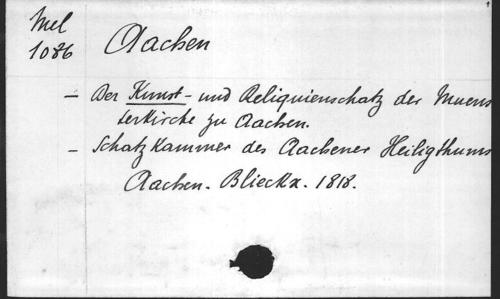 Mel
1086
Aachen
- Der Kunst- und Reliquienschatz der Muens
terkirche zu Aachen.
- Schatzkammer des Aachener Heiligthums
Aachen. Blieckx. 1818.